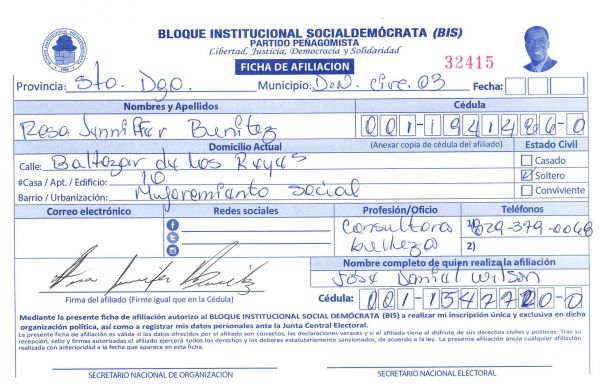 BLOQUE INSTITUCIONAL SOCIALDEMÓCRATA (BIS)
PARTIDO PEÑAGOMISTA
Libertad, Justicia, Democracia y Solidaridad
FICHA DE AFILIACION
32415
Provincia: Sto. Dgo. Municipio: D.N. Circ. 03 Fecha:
Nombres y Apellidos Cédula
Rosa Jenniffer Benitez 001-1941486-0
Domicilio Actual (Anexar copia de cédula del afiliado) Estado Civil
Calle: Baltazar de los Reyes Casado
#Casa / Apt. / Edificio: 10 Soltero
Barrio / Urbanización: Mujoramianto social Conviviente
Correo electrónico Redes sociales Profesión/Oficio Teléfonos
Consultora belleza 1) 829-379-0068
2)
Nombre completo de quien realiza la afiliación
José Daniel Wilson
Firma del afiliado (Firme igual que en la Cédula) Cédula: 001-1347720-0
Mediante la presente ficha de afiliación autorizo al BLOQUE INSTITUCIONAL SOCIAL DEMÓCRATA (BIS) a realizar mi inscripción única y exclusiva en dicha
organización política, así como a registrar mis datos personales ante la Junta Central Electoral.
La presente ficha de afiliación es válida si los datos ofrecidos por el afiliado son correctos, las declaraciones veraces y si el afiliado tiene el disfrute de sus derechos civiles y políticos. Tras su
recepción, sello y firmas autorizadas el afiliado ejercerá todos los derechos y los deberes estatutariamente sancionados, de acuerdo a la ley. La presente afiliación anula cualquier afiliación
realizada con anterioridad a la fecha que aparece en esta ficha.
SECRETARIO NACIONAL DE ORGANIZACIÓN SECRETARIO NACIONAL ELECTORAL